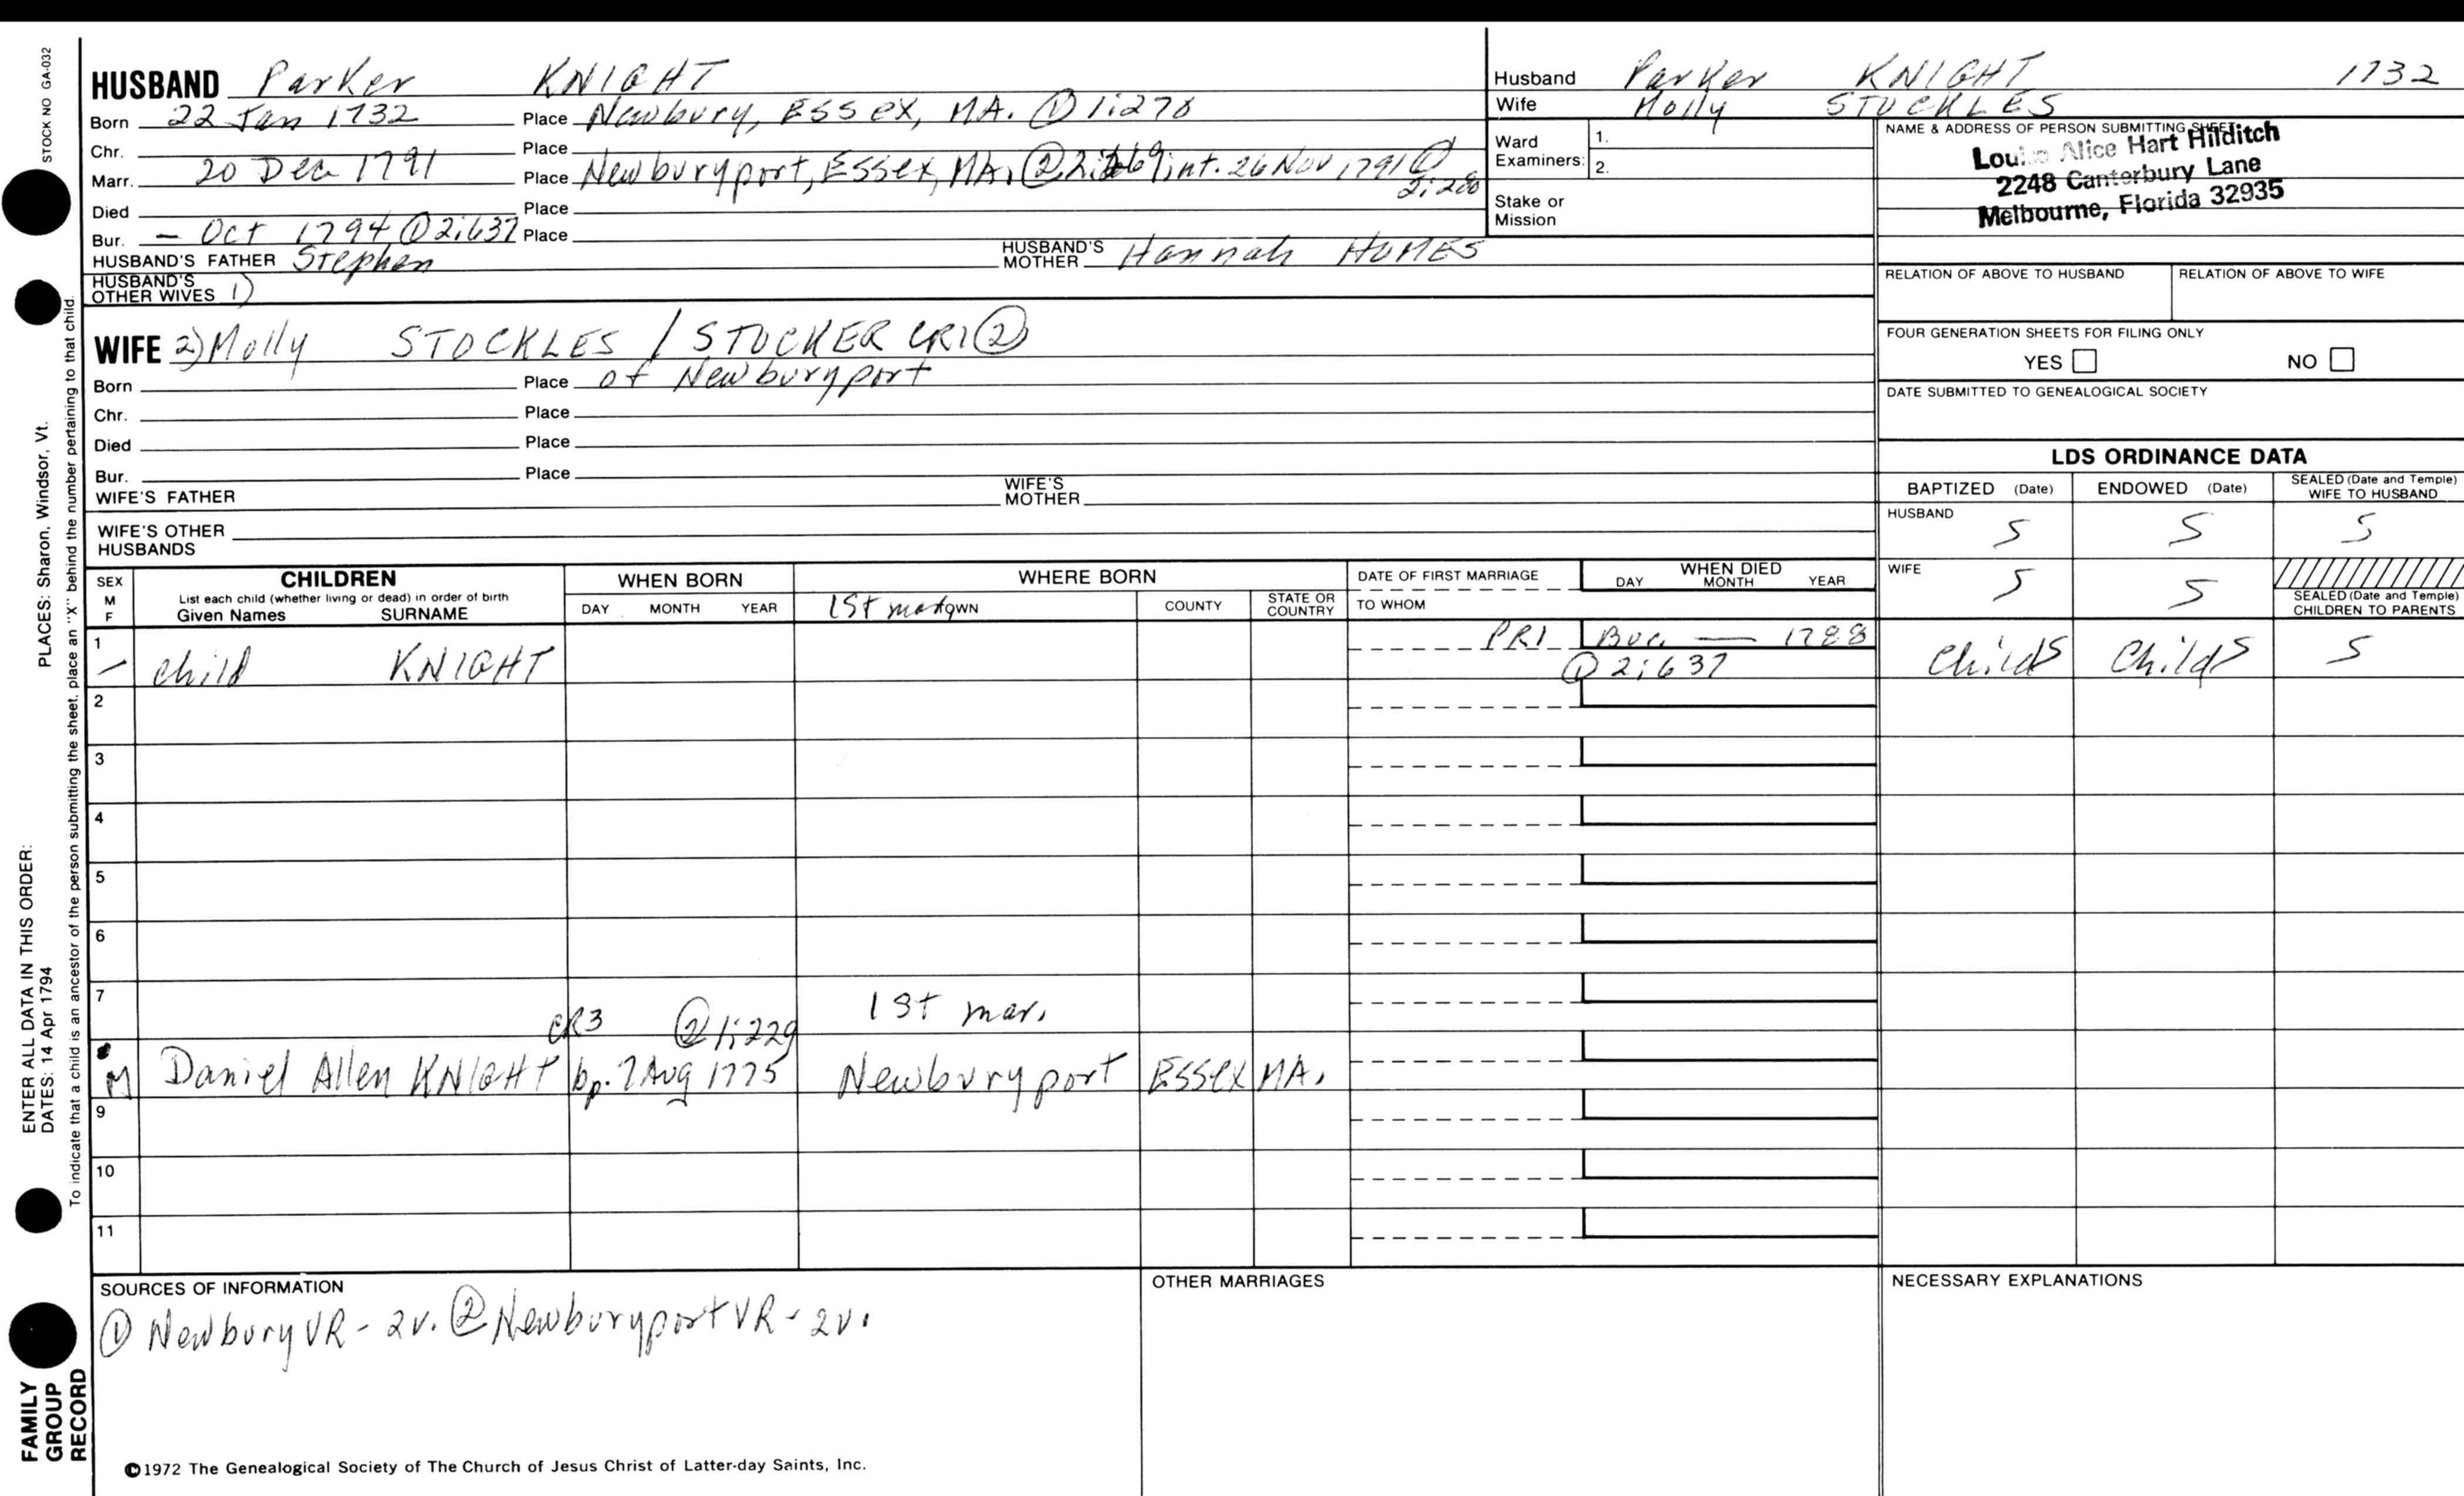 STOCK NO GA-032
HUSBAND Parker KNIGHT
Born 22 Jan 1732 Place Newbury, Essex, MA. ① 1:278
Chr. Place
Marr. 20 Dec 1791 Place Newburyport, Essex, MA, ② int. 26 Nov 1791 ②
2:280
Died Place
Bur. — Oct 1794 ① 2:637 Place
HUSBAND'S FATHER Stephen HUSBAND'S MOTHER Hannah HUMES
HUSBAND'S OTHER WIVES 1)
WIFE 2) Molly STOCKLES / STOCKER CR1 ②
Born Place of Newburyport
Chr. Place
Died Place
Bur. Place
WIFE'S FATHER WIFE'S MOTHER
WIFE'S OTHER HUSBANDS
Husband Parker KNIGHT 1732
Wife Molly STOCKLES
Ward Examiners: 1.
2.
Stake or Mission
NAME & ADDRESS OF PERSON SUBMITTING SHEET
Louise Alice Hart Hilditch
2248 Canterbury Lane
Melbourne, Florida 32935
RELATION OF ABOVE TO HUSBAND RELATION OF ABOVE TO WIFE
FOUR GENERATION SHEETS FOR FILING ONLY
YES NO
DATE SUBMITTED TO GENEALOGICAL SOCIETY
LDS ORDINANCE DATA
BAPTIZED (Date) ENDOWED (Date) SEALED (Date and Temple) WIFE TO HUSBAND
HUSBAND S S S
WIFE S S
SEALED (Date and Temple) CHILDREN TO PARENTS
SEX M F CHILDREN WHEN BORN WHERE BORN DATE OF FIRST MARRIAGE WHEN DIED
List each child (whether living or dead) in order of birth
Given Names SURNAME DAY MONTH YEAR 1st mar. COUNTY STATE OR COUNTRY TO WHOM DAY MONTH YEAR
1 — child KNIGHT PR1 Bur. — 1788 Childs Childs S
① 2:637
2
3
4
5
6
7
CR3 ② 1:229 1st mar.
M Daniel Allen KNIGHT bp. 7 Aug 1775 Newburyport Essex MA.
9
10
11
SOURCES OF INFORMATION OTHER MARRIAGES NECESSARY EXPLANATIONS
① Newbury VR - 2v. ② Newburyport VR - 2v.
©1972 The Genealogical Society of The Church of Jesus Christ of Latter-day Saints, Inc.
PLACES: Sharon, Windsor, Vt.
To indicate that a child is an ancestor of the person submitting the sheet, place an "X" behind the number pertaining to that child.
ENTER ALL DATA IN THIS ORDER:
DATES: 14 Apr 1794
FAMILY
GROUP
RECORD